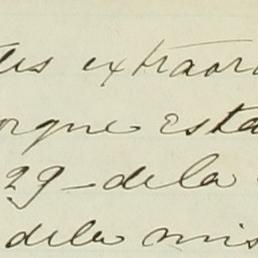 tes extraor
orque esta
29 - de la
de la mis